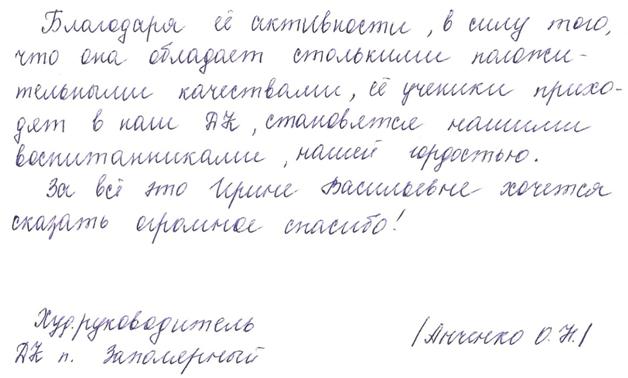 Благодаря её активности, в силу того,
что она обладает столькими положи-
тельными качествами, её ученики прихо-
дят в наш ДК, становятся нашими
воспитанниками, нашей гордостью.
За всё это Ирине Васильевне хочется
сказать огромное спасибо!
Худ.руководитель
ДК п. Заполярный
/Анченко О.Н./